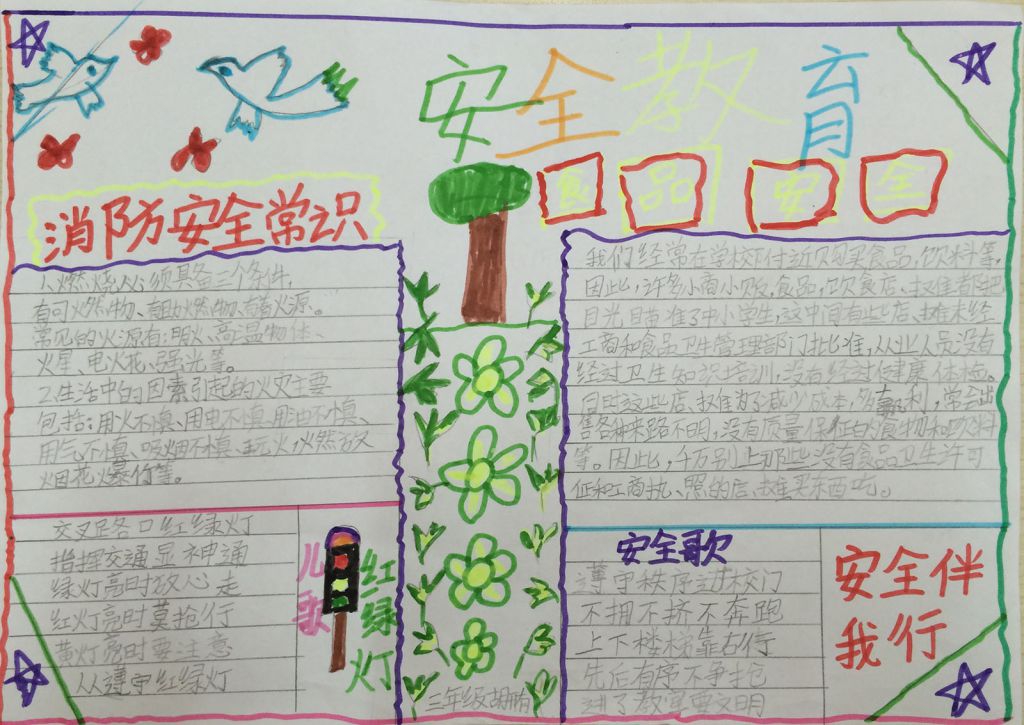 安全教育
食品安全
消防安全常识
1.燃烧必须具备三个条件,
有可燃物、有助燃物、有着火源。
常见的火源有:明火、高温物体、
火星、电火花、强光等。
2.生活中的因素引起的火灾主要
包括:用火不慎、用电不慎、用油不慎、
用气不慎、吸烟不慎、玩火、燃放
烟花爆竹等。
我们经常在学校附近购买食品,饮料等,
因此,许多小商小贩,食品,饮食店、摊准都把
目光瞄准了中小学生,这中间有些店、摊未经
工商和食品卫生管理部门批准,从业人员没有
经过卫生知识培训,没有经过健康体检。
同时这些店、摊为了减少成本,多有利,常会出
售各种来路不明,没有质量保证的食物和饮料
等。因此,千万别上那些没有食品卫生许可
证和工商执、照的店、摊买东西吃。
交叉路口红绿灯
指挥交通显神通
绿灯亮时放心走
红灯亮时莫抢行
黄灯亮时要注意
人人遵守红绿灯
儿歌
红绿灯
三年级胡
安全歌
遵守秩序进校门
不拥不挤不奔跑
上下楼梯靠右行
先后有序不争抢
进了教室要文明
安全伴
我行